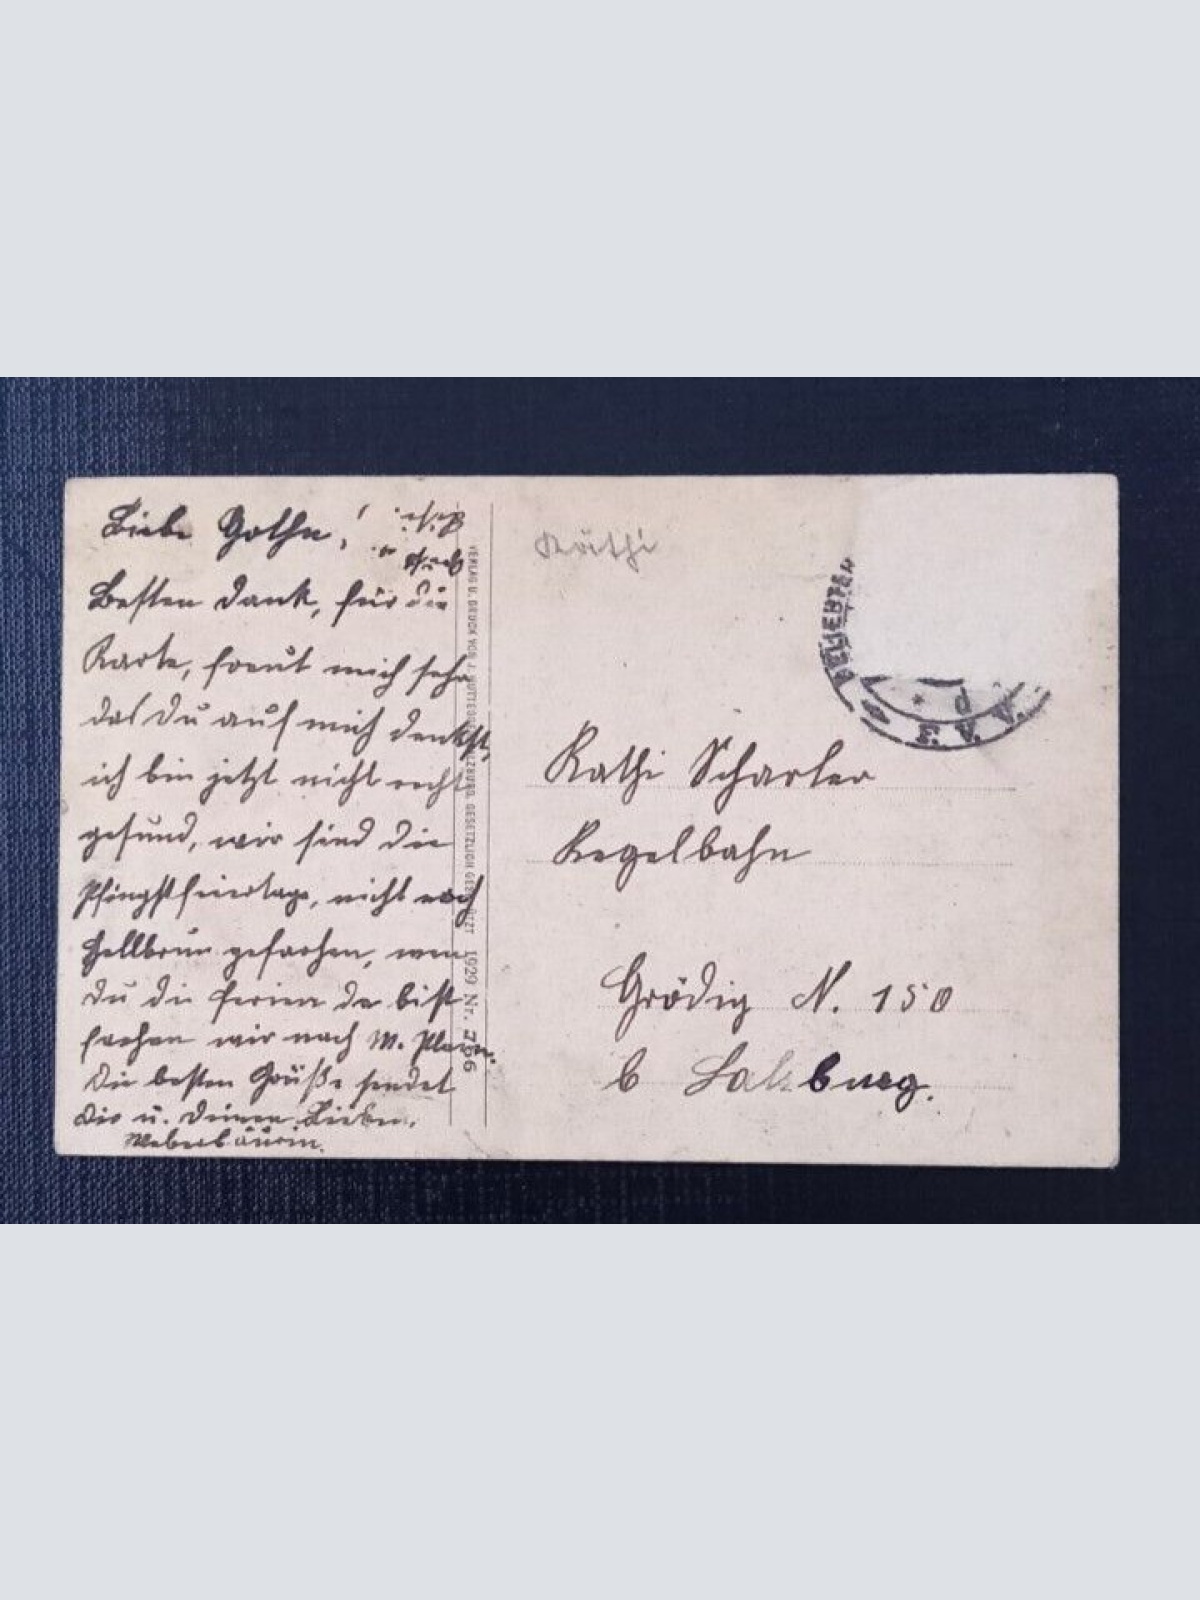 Liebe Gothn!
Besten Dank, für die
Karte, freut mich sehr
das Du auf mich denkst,
ich bin jetzt nicht recht
gesund, wir sind die
Pfingstfeiertage, nicht nach
Hellbrun gefarhen, wen
Du die Ferien da bist
farhen wir nach M. Plain.
Die besten Grüße sendet
Dir u. Deinen Lieben.
Weberbäurin.
VERLAG U. DRUCK VON J. HUTTEGGER, SALZBURG. GESETZLICH GESCHÜTZT 1929 Nr. 766
Käthi
Kathi Scharler
Kegelbahn
Grödig N. 150
b Salzburg.